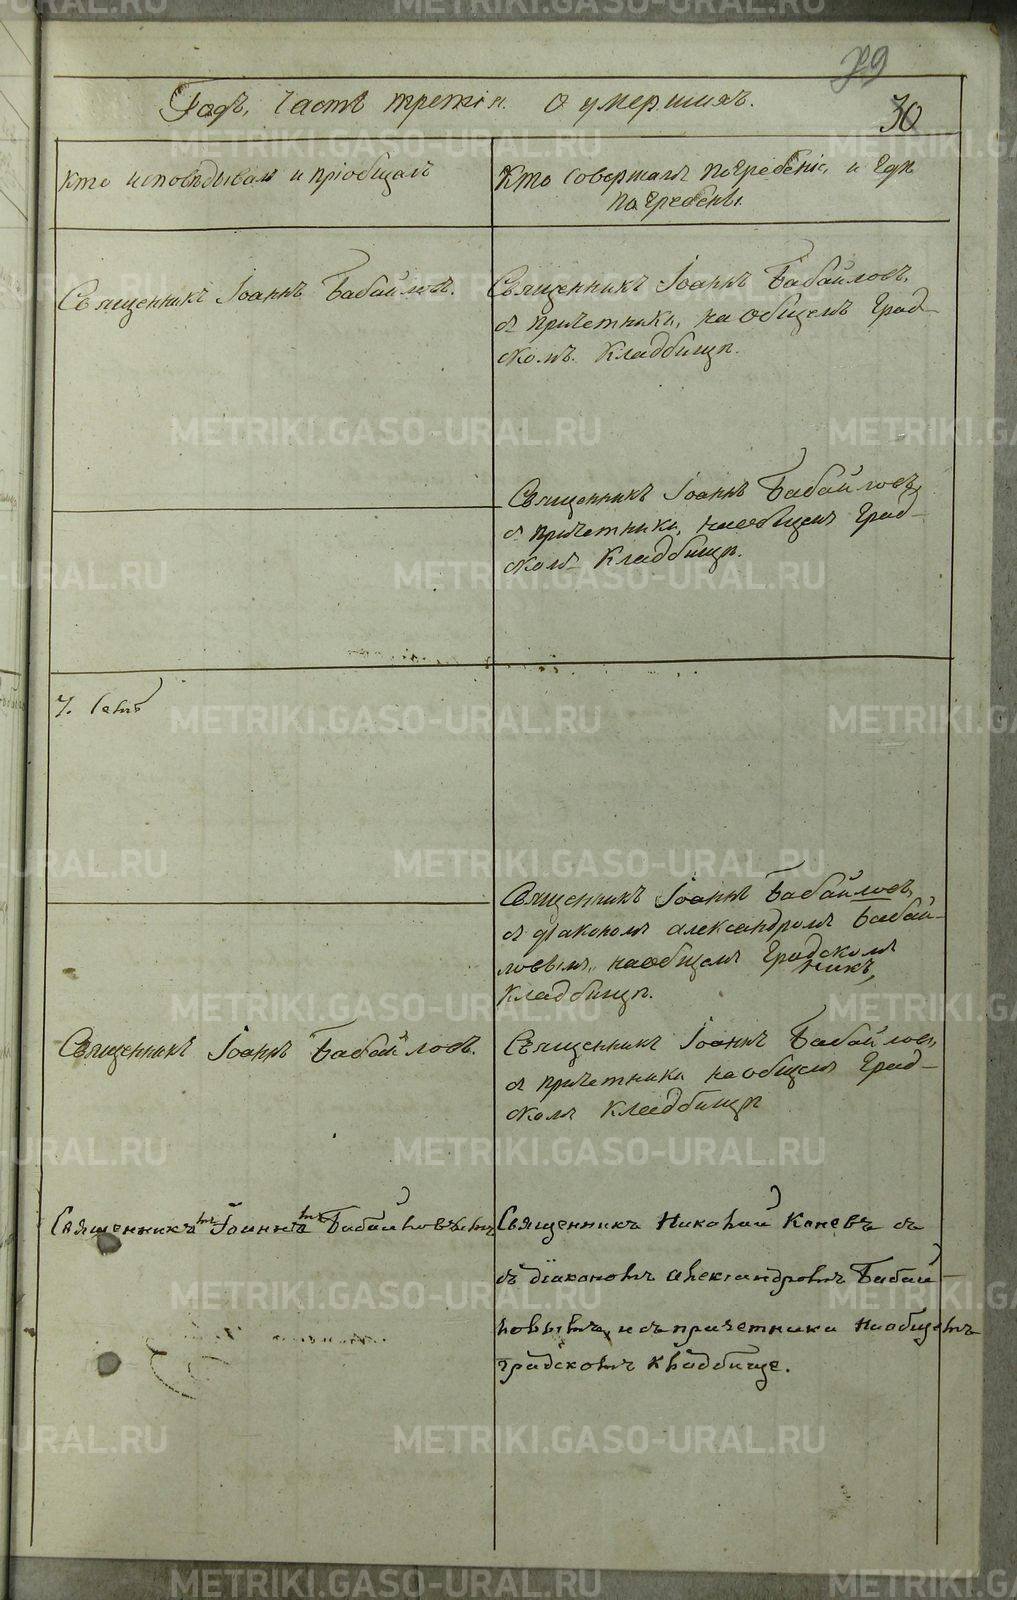 79
Годъ, часть третія. О умершихъ.
30
Кто исповѣдывалъ и пріобщалъ
Кто совершалъ погребеніе, и гдѣ
погребены.
Священникъ Іоаннъ Бабайловъ.
Священникъ Іоаннъ Бабайловъ,
съ причетники, на общемъ град-
скомъ кладбищѣ.
Священникъ Іоаннъ Бабайловъ,
съ причетники, на общемъ град-
скомъ кладбищѣ.
Священникъ Іоаннъ Бабайловъ,
съ діакономъ Александромъ Бабай-
ловымъ, на общемъ градскомъ
кладбищѣ.
Священникъ Іоаннъ Бабайловъ.
Священникъ Іоаннъ Бабайловъ,
съ причетники на общемъ град-
скомъ кладбищѣ
Священникъ Іоаннъ Бабайловъ
Священникъ Николай Каневъ съ
съ діакономъ Александромъ Бабай-
ловымъ, и съ причетники на общемъ
градскомъ кладбище.
METRIKI.GASO-URAL.RU